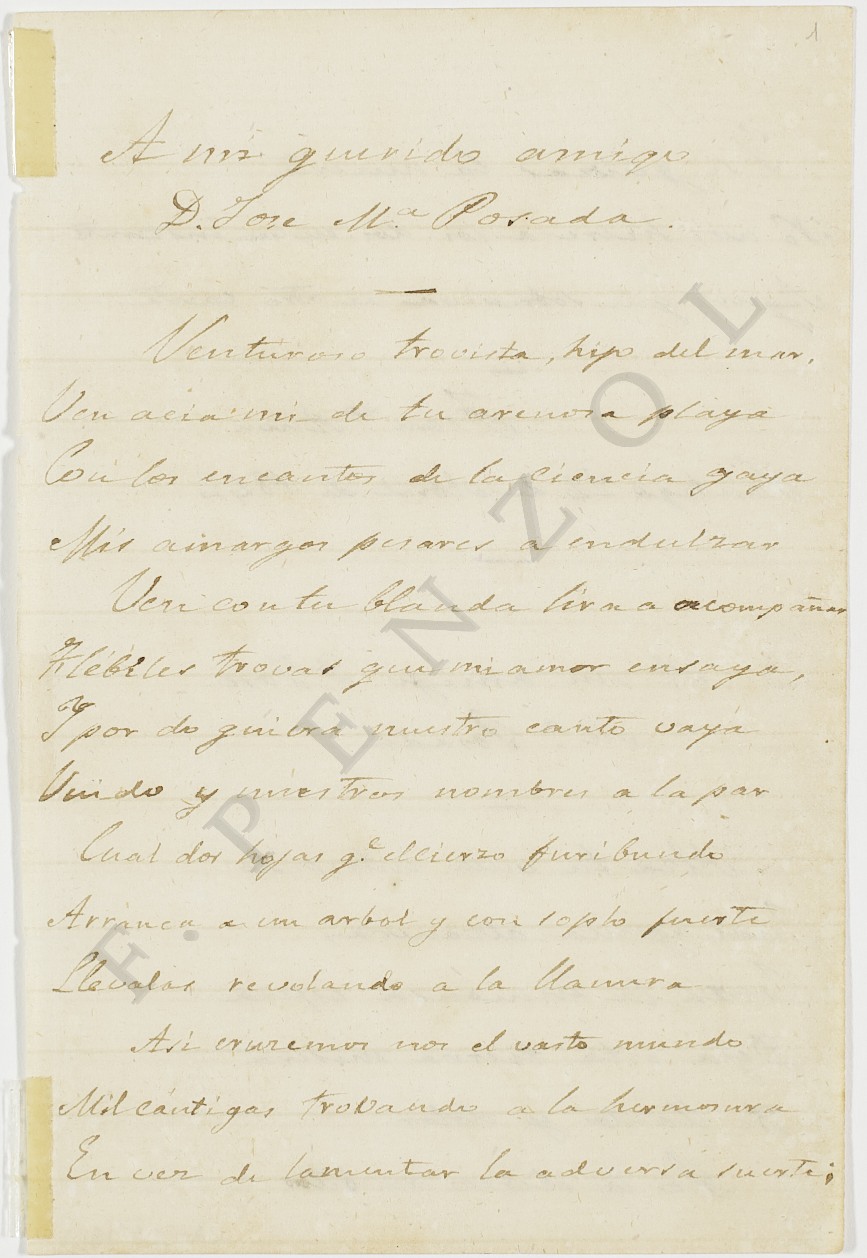 1
A mi querido amigo
D. Jose M.ª Posada.
Venturoso trovista, hijo del mar,
Ven acia mi de tu arenosa playa
Con los encantos de la ciencia gaya
Mis amargos pesares a endulzar
Ven con tu blanda lira a acompañar
Flébiles trovas que mi amor ensaya,
Y por do quiera nuestro canto vaya
Unido y nuestros nombres a la par
Cual dos hojas q.e el cierzo furibundo
Arranca a un arbol y con soplo fuerte
Llevalas revolando a la llanura
Asi cruzemos nos el vasto mundo
Mil cántigas trovando a la hermosura
En vez de lamentar la adversa suerte;
F. PENZOL